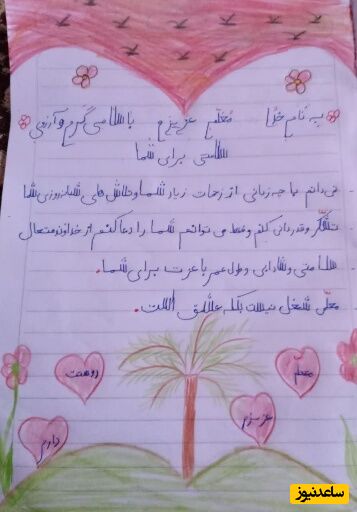 به نام خدا معلم عزیزم با سلامی گرم و آرزوی
سلامتی برای شما
نمی‌دانم با چه زبانی از زحمات زیاد شما و تلاش های شبانه روزی شما
تشکر و قدردانی کنم و فقط می توانم شما را دعا کنم از خداوند متعال
سلامتی و شادابی و طول عمر با عزت برای شما.
معلمی شغل نیست بلکه عشق است.
معلم
دوستت
عزیزم
دارم
ساعدنیوز